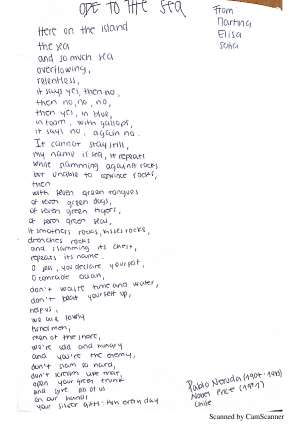 ODE TO THE SEA
From
Martina
Elisa
Sofia
Here on the island
the sea
and so much sea
overflowing,
relentless,
it says yes, then no,
then no, no, no,
then yes, in blue,
in foam, with gallops,
it says no, again no.
It cannot stay still,
my name is sea, it repeats
while slamming against rocks
but unable to convince rocks,
then
with seven green tongues
of seven green dogs,
of seven green tigers,
of seven green seas,
it smothers rocks, kisses rocks,
drenches rocks
and slamming its chest,
repeats its name.
O sea, you declare yourself,
O comrade ocean,
don't waste time and water,
don't beat yourself up,
help us,
we are lowly
fishermen,
men of the shore,
we're cold and hungry
and you're the enemy,
don't slam so hard,
don't scream like that,
open your green trunk
and give all of us
on our hands
your silver gifts: fish every day
Pablo Neruda (1904-1973)
Nobel Prize (1971)
Chile
Scanned by CamScanner